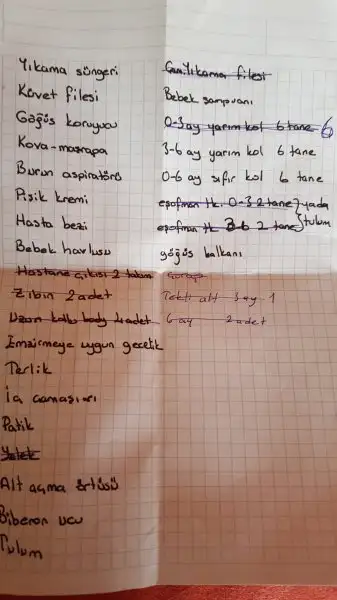 Yıkama süngeri
Küvet filesi
Göğüs koruyucu
Kova-maşrapa
Burun aspiratörü
Pişik kremi
Hasta bezi
Bebek havlusu
Hastane çıkışı 2 takım
Zıbın 2 adet
Uzun kollu body 4 adet
Emzirmeye uygun gecelik
Terlik
İç çamaşırı
Patik
Yelek
Alt açma örtüsü
Biberon ucu
Tulum
Yıkama filesi
Bebek şampuanı
0-3 ay yarım kol 6 tane 6
3-6 ay yarım kol 6 tane
0-6 ay sıfır kol 6 tane
eşofman tk. 0-3 2 tane } yada
eşofman tk 3-6 2 tane } tulum
göğüs balkanı
Çorap
Tekli alt 3 ay 1
6 ay 2 adet